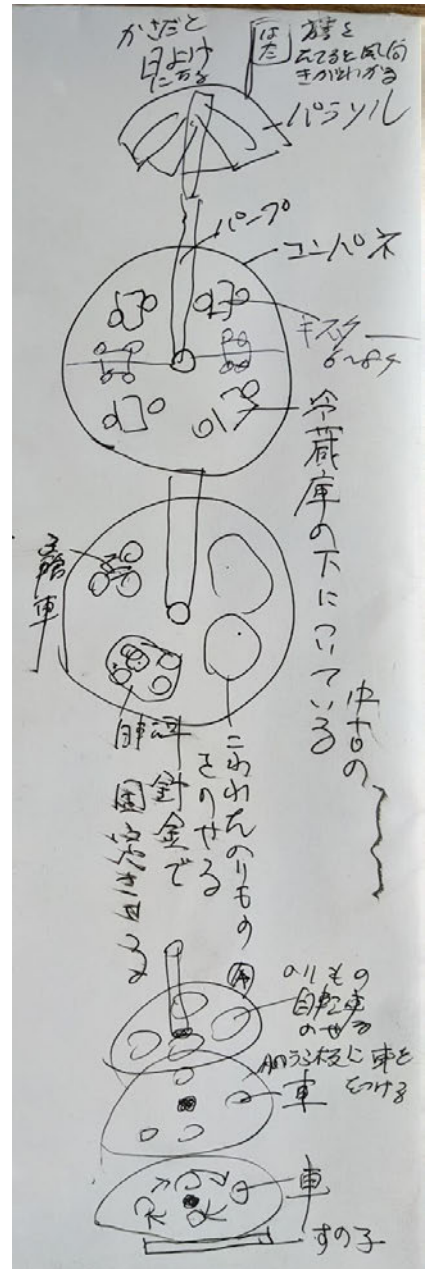 かさだと
日よけ
になる
はた
旗を
たてると風向
きがわかる
パラソル
パープ
コンパネ
キャスター
6〜8ケ
冷蔵庫の下についている
中古の
三輪車
こわれたのりもの
をのせる
針金で
固定させる
のりもの
自転車
のせる
丸い板に車を
つける
車
車
すの子